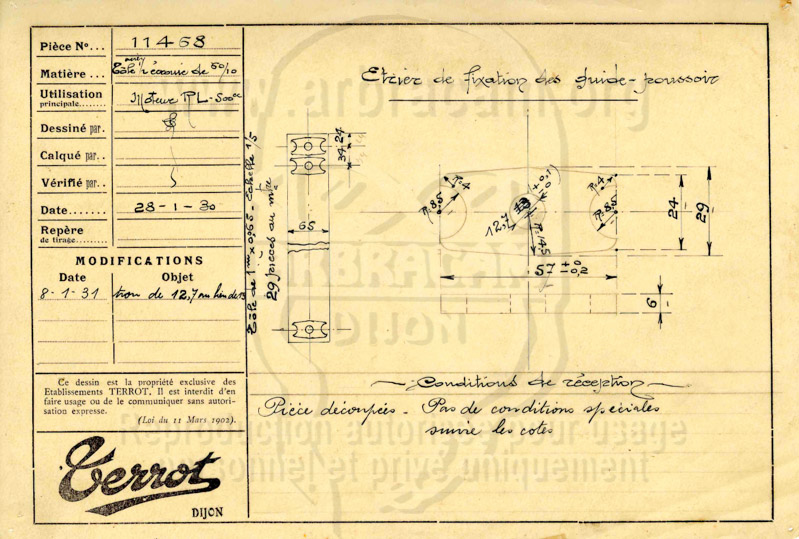 Pièce No... 11468
Matière... Tôle acier récouie de 50/10
Utilisation
principale........ Moteur RL-500cc
Dessiné par.
Calqué par..
Vérifié par..
Date....... 28-1-30
Repère
de tirage..........
MODIFICATIONS
Date Objet
8-1-31 trou de 12,7 au lieu de 13
Ce dessin est la propriété exclusive des
Etablissements TERROT, Il est interdit d'en
faire usage ou de le communiquer sans autori-
sation expresse.
(Loi du 11 Mars 1902).
Terrot
DIJON
Etrier de fixation des guide-poussoir
Tôle de 1m x 0,65 - Echelle 1/5
29 pièces au m
34,24
65
R=4
R=8,5
12,7
13
R=14,5
R=4
R=8,5
24
29
57 +0 -0,2
6
Conditions de réception
Pièce découpées - Pas de conditions spéciales
suivre les cotes
www.arbracam.org
ARBRACAM
DIJON
Reproduction autorisée pour usage
personnel et privé uniquement